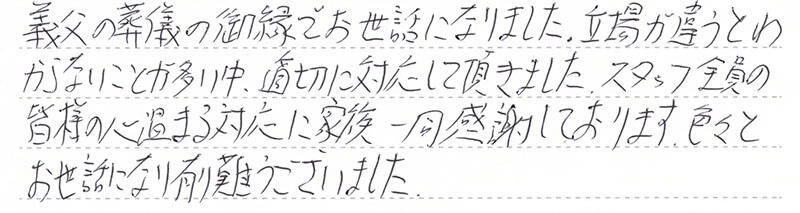 義父の葬儀の御縁でお世話になりました。立場が違うとわ
からないことが多い中、適切に対応して頂きました。スタッフ全員の
皆様の心温まる対応に家後一同感謝しております。色々と
お世話になり有難うございました。